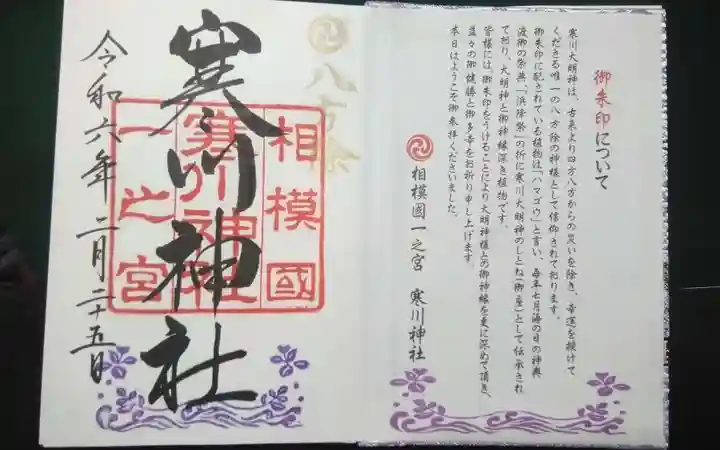 御朱印について
寒川大明神は、古来より四方八方からの災いを除き、幸運を授けて
くださる唯一の八方除の神様として信仰されて居ります。
御朱印に配されている植物は「ハマゴウ」と言い、毎年七月海の日の神輿
渡御の祭典「浜降祭」の折に寒川大明神のしとね(御座)として伝承され
て居り、大明神と御神縁深き植物です。
皆様には、御朱印をうけることにより大明神様との御神縁を更に深めて頂き、
益々の御健勝と御多幸をお祈り申し上げます。
本日はようこそ御参拝くださいました。
相模國一之宮 寒川神社
八方除
寒川神社
相模國
寒川神社
一之宮
令和六年二月二十五日